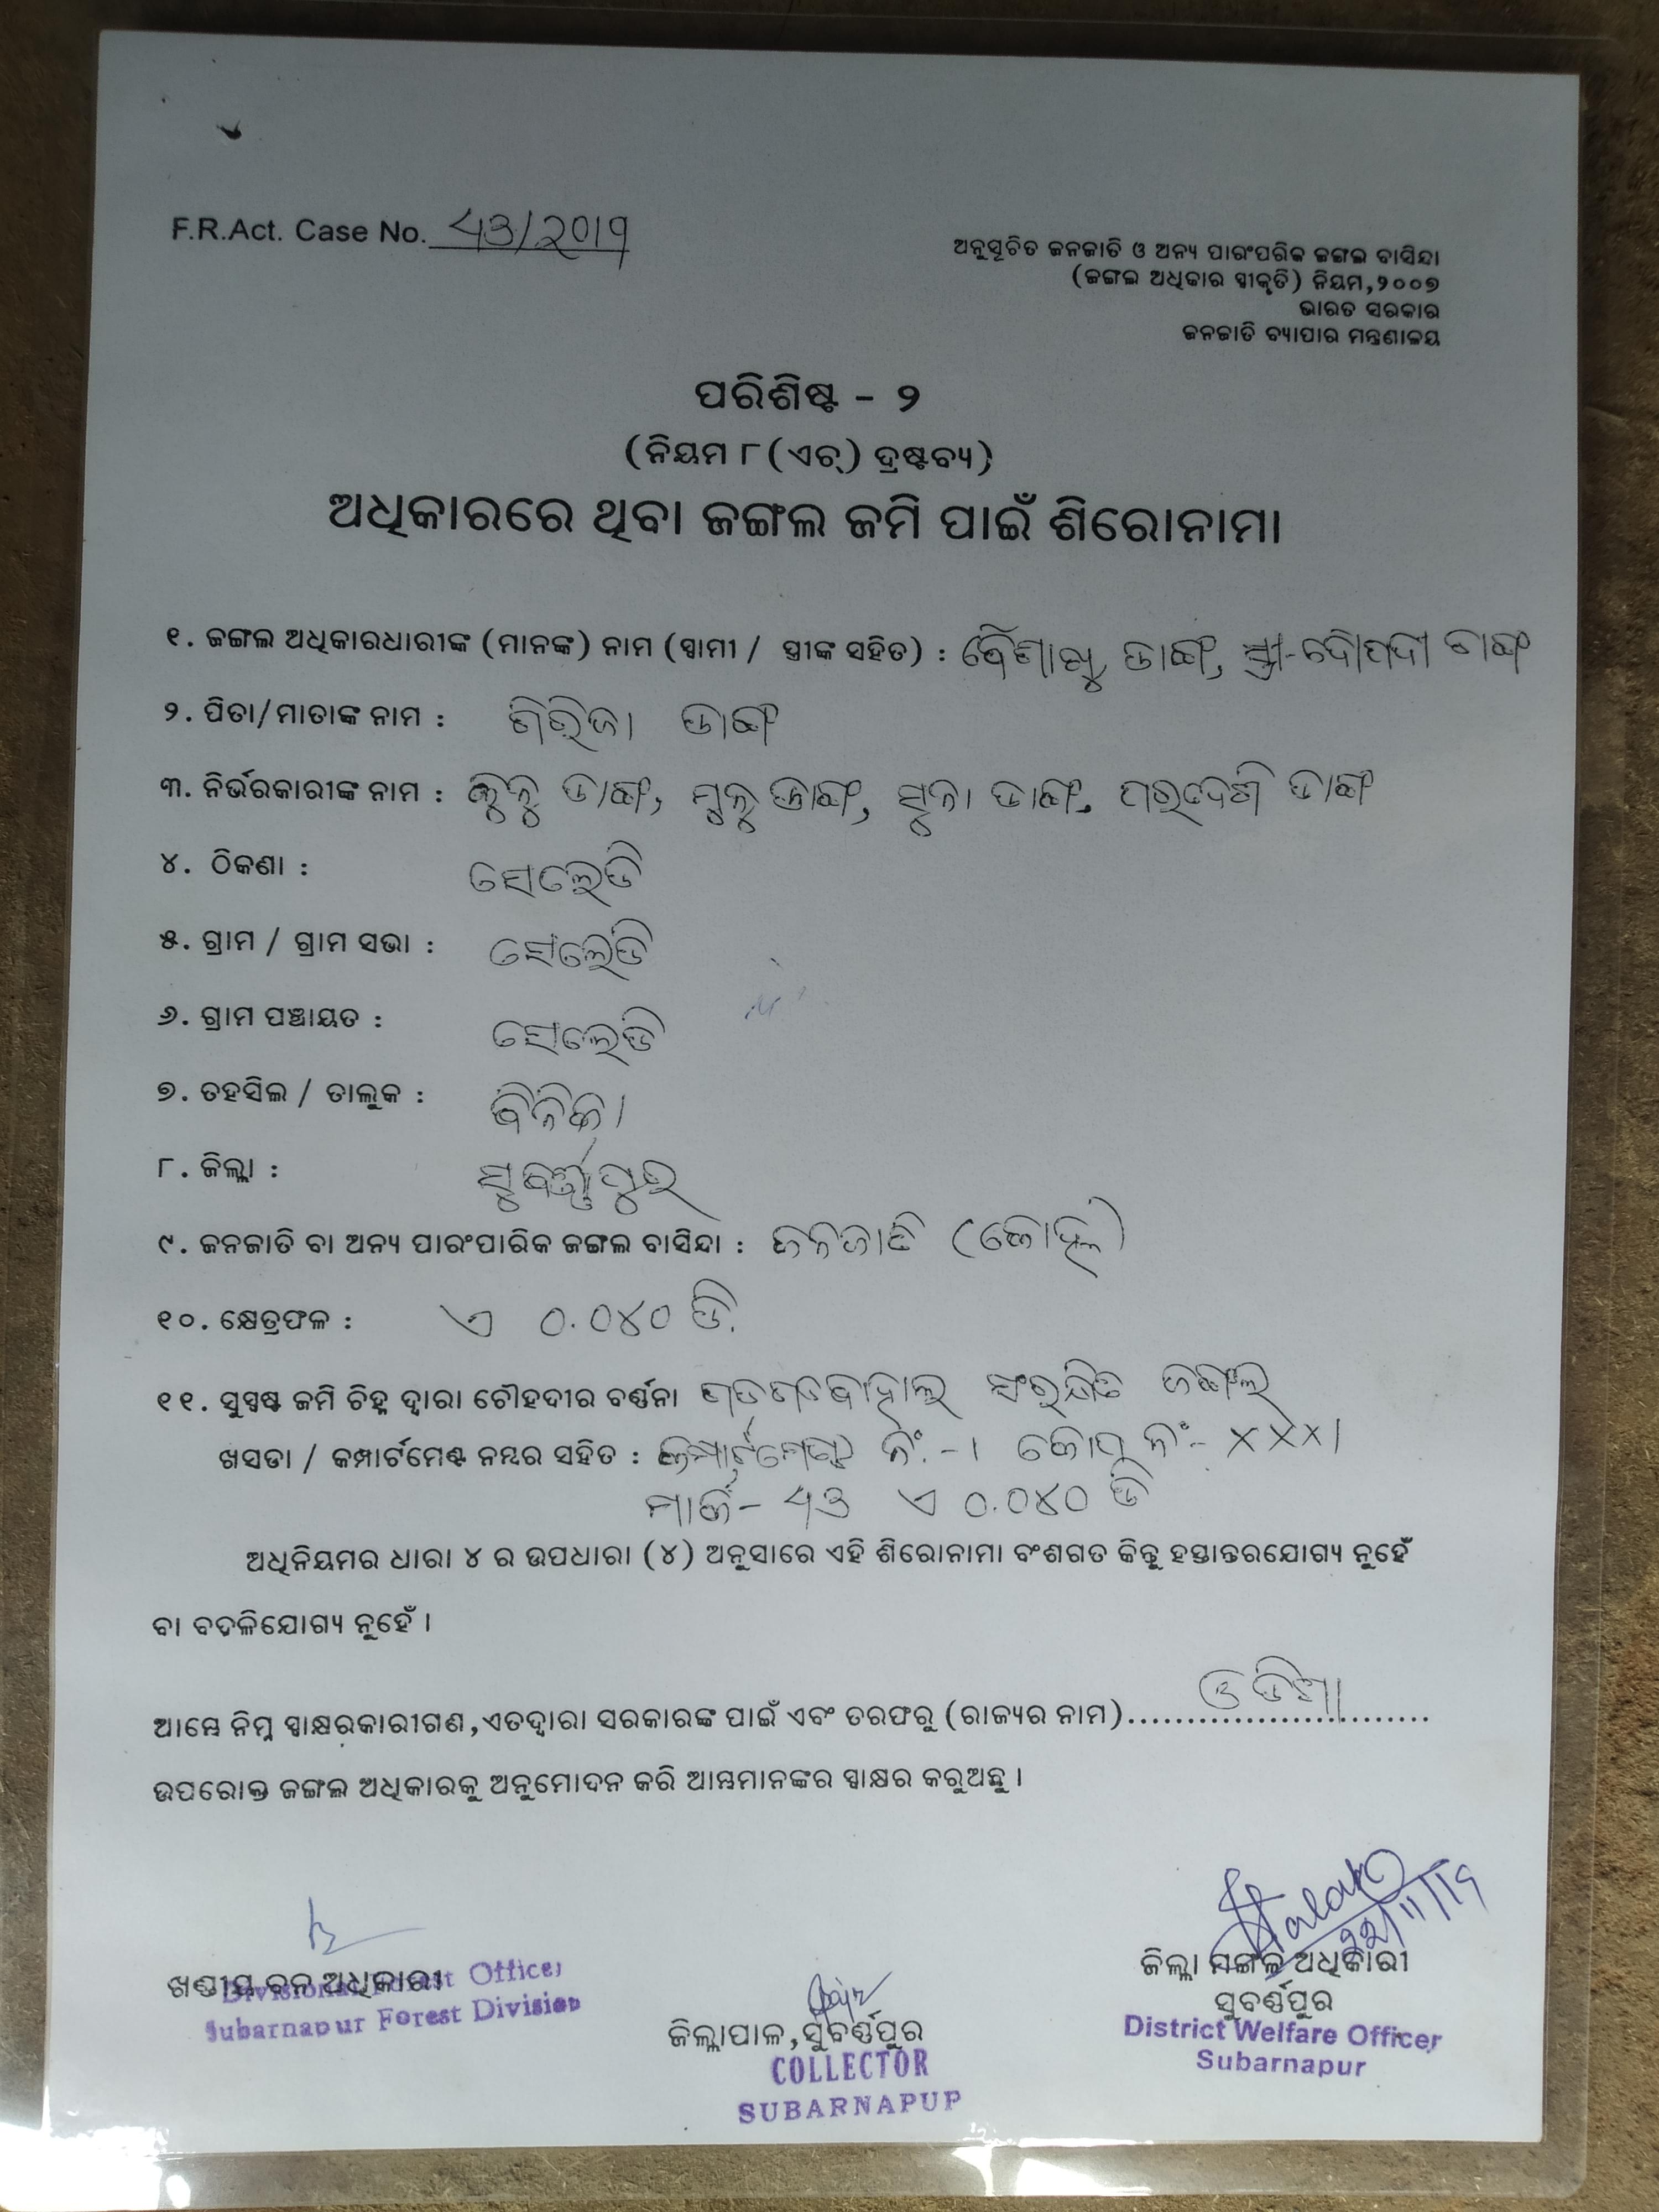 F.R.Act. Case No. ୩୬/୨୦୧୨
ଅନୁସୂଚିତ ଜନଜାତି ଓ ଅନ୍ୟ ପାରଂପରିକ ଜଙ୍ଗଲ ବାସିନ୍ଦା
(ଜଙ୍ଗଲ ଅଧିକାର ସ୍ୱୀକୃତି) ନିୟମ,୨୦୦୭
ଭାରତ ସରକାର
ଜନଜାତି ବ୍ୟାପାର ମନ୍ତ୍ରଣାଳୟ
ପରିଶିଷ୍ଟ - ୨
(ନିୟମ ୮(ଏଚ୍) ଦ୍ରଷ୍ଟବ୍ୟ)
ଅଧିକାରରେ ଥିବା ଜଙ୍ଗଲ ଜମି ପାଇଁ ଶିରୋନାମା
୧. ଜଙ୍ଗଲ ଅଧିକାରଧାରୀଙ୍କ (ମାନଙ୍କ) ନାମ (ସ୍ୱାମୀ / ସ୍ତ୍ରୀଙ୍କ ସହିତ) : ବୈଶାଖୁ ଡାଙ୍ଗ, ସ୍ତ୍ରୀ-ଦୌପଦୀ ଡାଙ୍ଗ
୨. ପିତା/ମାତାଙ୍କ ନାମ : ଗିରିଜା ଡାଙ୍ଗ
୩. ନିର୍ଭରକାରୀଙ୍କ ନାମ : କୁନୁ ଡାଙ୍ଗ, ମୁନୁ ଡାଙ୍ଗ, ସୁନା ଡାଙ୍ଗ, ପରଦେଶି ଡାଙ୍ଗ
୪. ଠିକଣା : ସେଲେଡି
୫. ଗ୍ରାମ / ଗ୍ରାମ ସଭା : ସେଲେଡି
୬. ଗ୍ରାମ ପଞ୍ଚାୟତ : ସେଲେଡି
୭. ତହସିଲ / ତାଲୁକ : ବିନିକା
୮. ଜିଲ୍ଲା : ସୁବର୍ଣ୍ଣପୁର
୯. ଜନଜାତି ବା ଅନ୍ୟ ପାରଂପାରିକ ଜଙ୍ଗଲ ବାସିନ୍ଦା : ଜନଜାତି (କୋହ୍ଲ)
୧୦. କ୍ଷେତ୍ରଫଳ : ଏ ୦.୦୪୦ ଡି.
୧୧. ସୁସ୍ପଷ୍ଟ ଜମି ଚିହ୍ନ ଦ୍ୱାରା ଚୌହଦୀର ବର୍ଣ୍ଣନା ସଂରକ୍ଷିତ ଜଙ୍ଗଲ
ଖସଡା / କମ୍ପାର୍ଟମେଣ୍ଟ ନମ୍ବର ସହିତ : କମ୍ପାର୍ଟମେଣ୍ଟ ନଂ.-୧ ନଂ- XXXI
ମାର୍କ- ୩୬ ଏ ୦.୦୪୦ ଡି
ଅଧିନିୟମର ଧାରା ୪ ର ଉପଧାରା (୪) ଅନୁସାରେ ଏହି ଶିରୋନାମା ବଂଶଗତ କିନ୍ତୁ ହସ୍ତାନ୍ତରଯୋଗ୍ୟ ନୁହେଁ
ବା ବଦଳିଯୋଗ୍ୟ ନୁହେଁ ।
ଆମ୍ଭେ ନିମ୍ନ ସ୍ୱାକ୍ଷରକାରୀଗଣ,ଏତଦ୍ୱାରା ସରକାରଙ୍କ ପାଇଁ ଏବଂ ତରଫରୁ (ରାଜ୍ୟର ନାମ)....ଓଡିଶା....
ଉପରୋକ୍ତ ଜଙ୍ଗଲ ଅଧିକାରକୁ ଅନୁମୋଦନ କରି ଆମ୍ଭମାନଙ୍କର ସ୍ୱାକ୍ଷର କରୁଅଛୁ ।
ଖଣ୍ଡୀୟ ବନ ଅଧିକାରୀ
Divisional Forest Officer
Subarnapur Forest Division
ଜିଲ୍ଲାପାଳ,ସୁବର୍ଣ୍ଣପୁର
COLLECTOR
SUBARNAPUP
ଜିଲ୍ଲା ମଙ୍ଗଳ ଅଧିକାରୀ
ସୁବର୍ଣ୍ଣପୁର
District Welfare Officer
Subarnapur